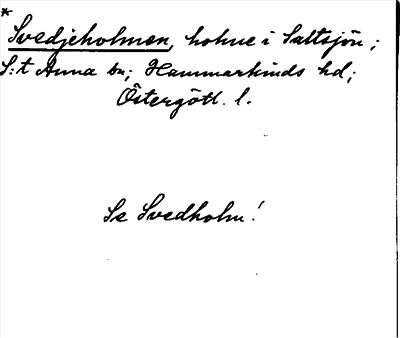 *
Svedjeholmen, holme i Saltsjön;
S:t Anna sn; Hammarkinds hd;
Östergötl. l.
Se Svedholm!